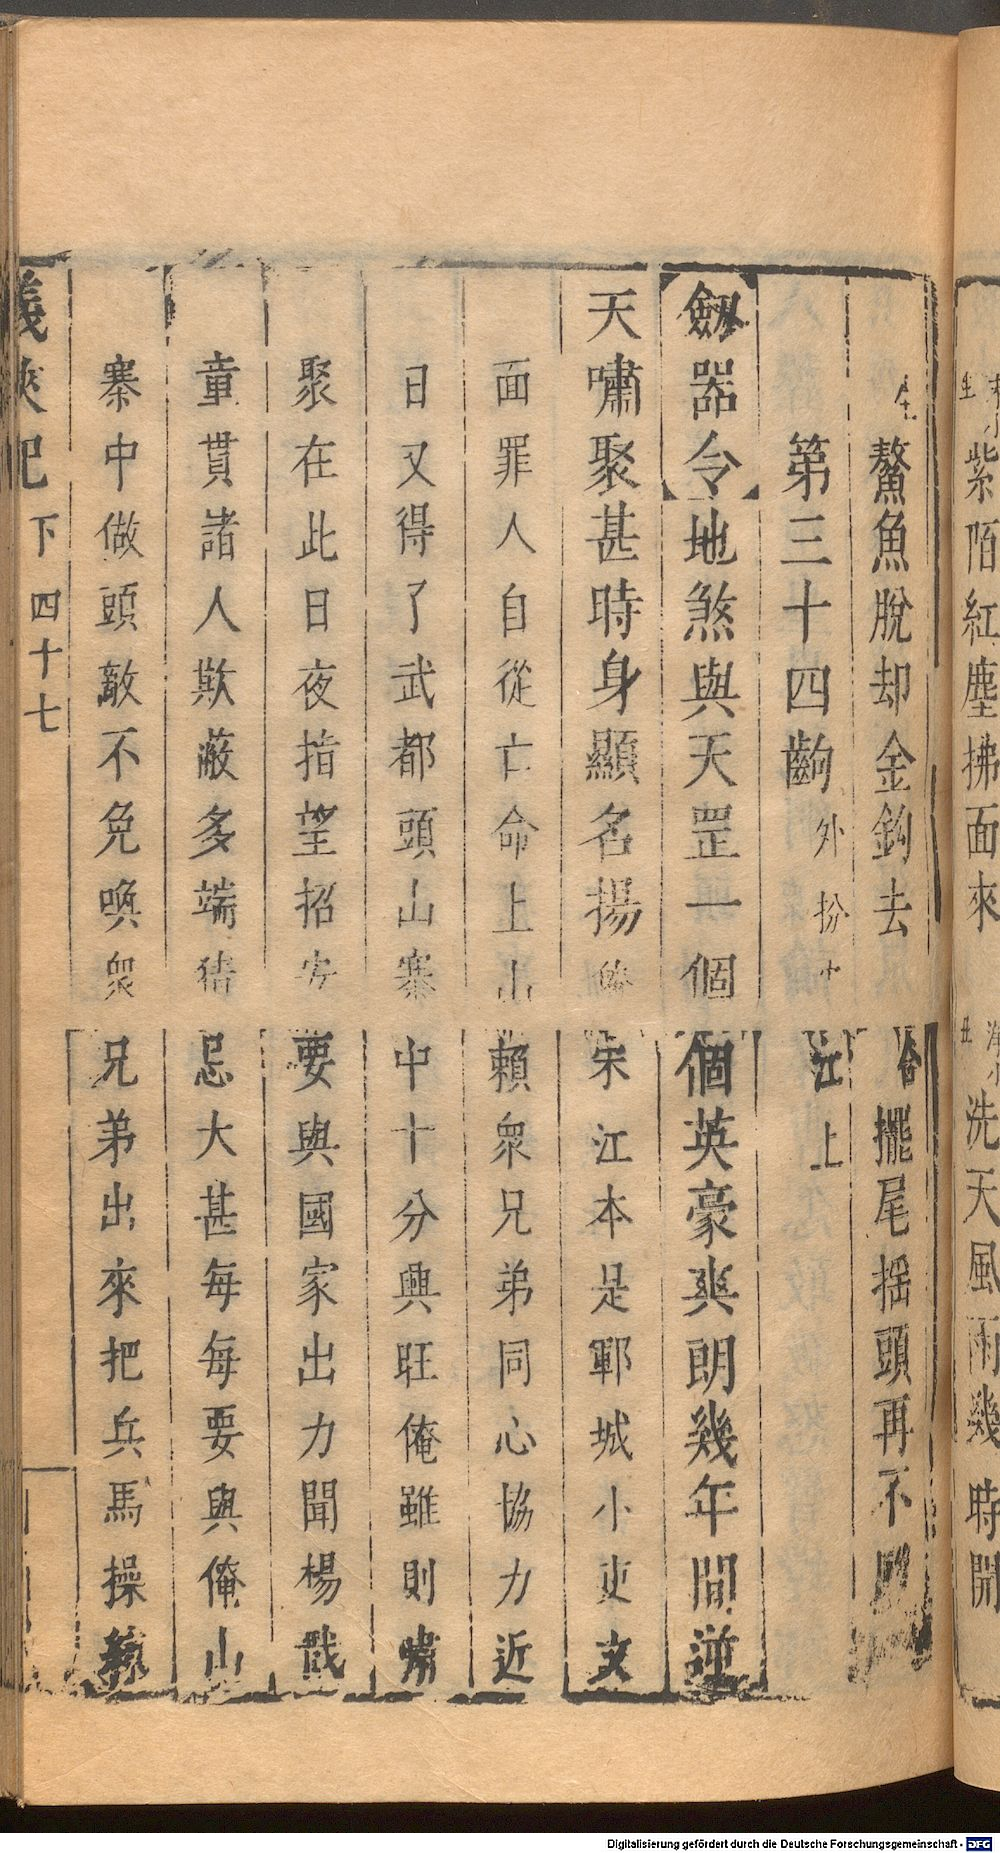 紫陌紅塵拂面來 洗天風雨幾時開
生 鰲魚脫却金鈎去 合 擺尾揺頭再不
第三十四齣 外扮 江上
劔器令 地煞與天罡一個個英豪爽朗幾年間逆
天嘯聚甚時身顯名揚 宋江本是鄆城小吏文
面罪人自從亡命上山賴衆兄弟同心協力近
日又得了武都頭山寨中十分興旺俺雖則嘯
聚在此日夜指望招安要與國家出力聞楊戩
童貫諸人欺蔽多端猜忌大甚每每要與俺山
寨中做頭敵不免喚衆兄弟出來把兵馬操練
義俠記 下 四十七
Digitalisierung gefördert durch die Deutsche Forschungsgemeinschaft - DFG